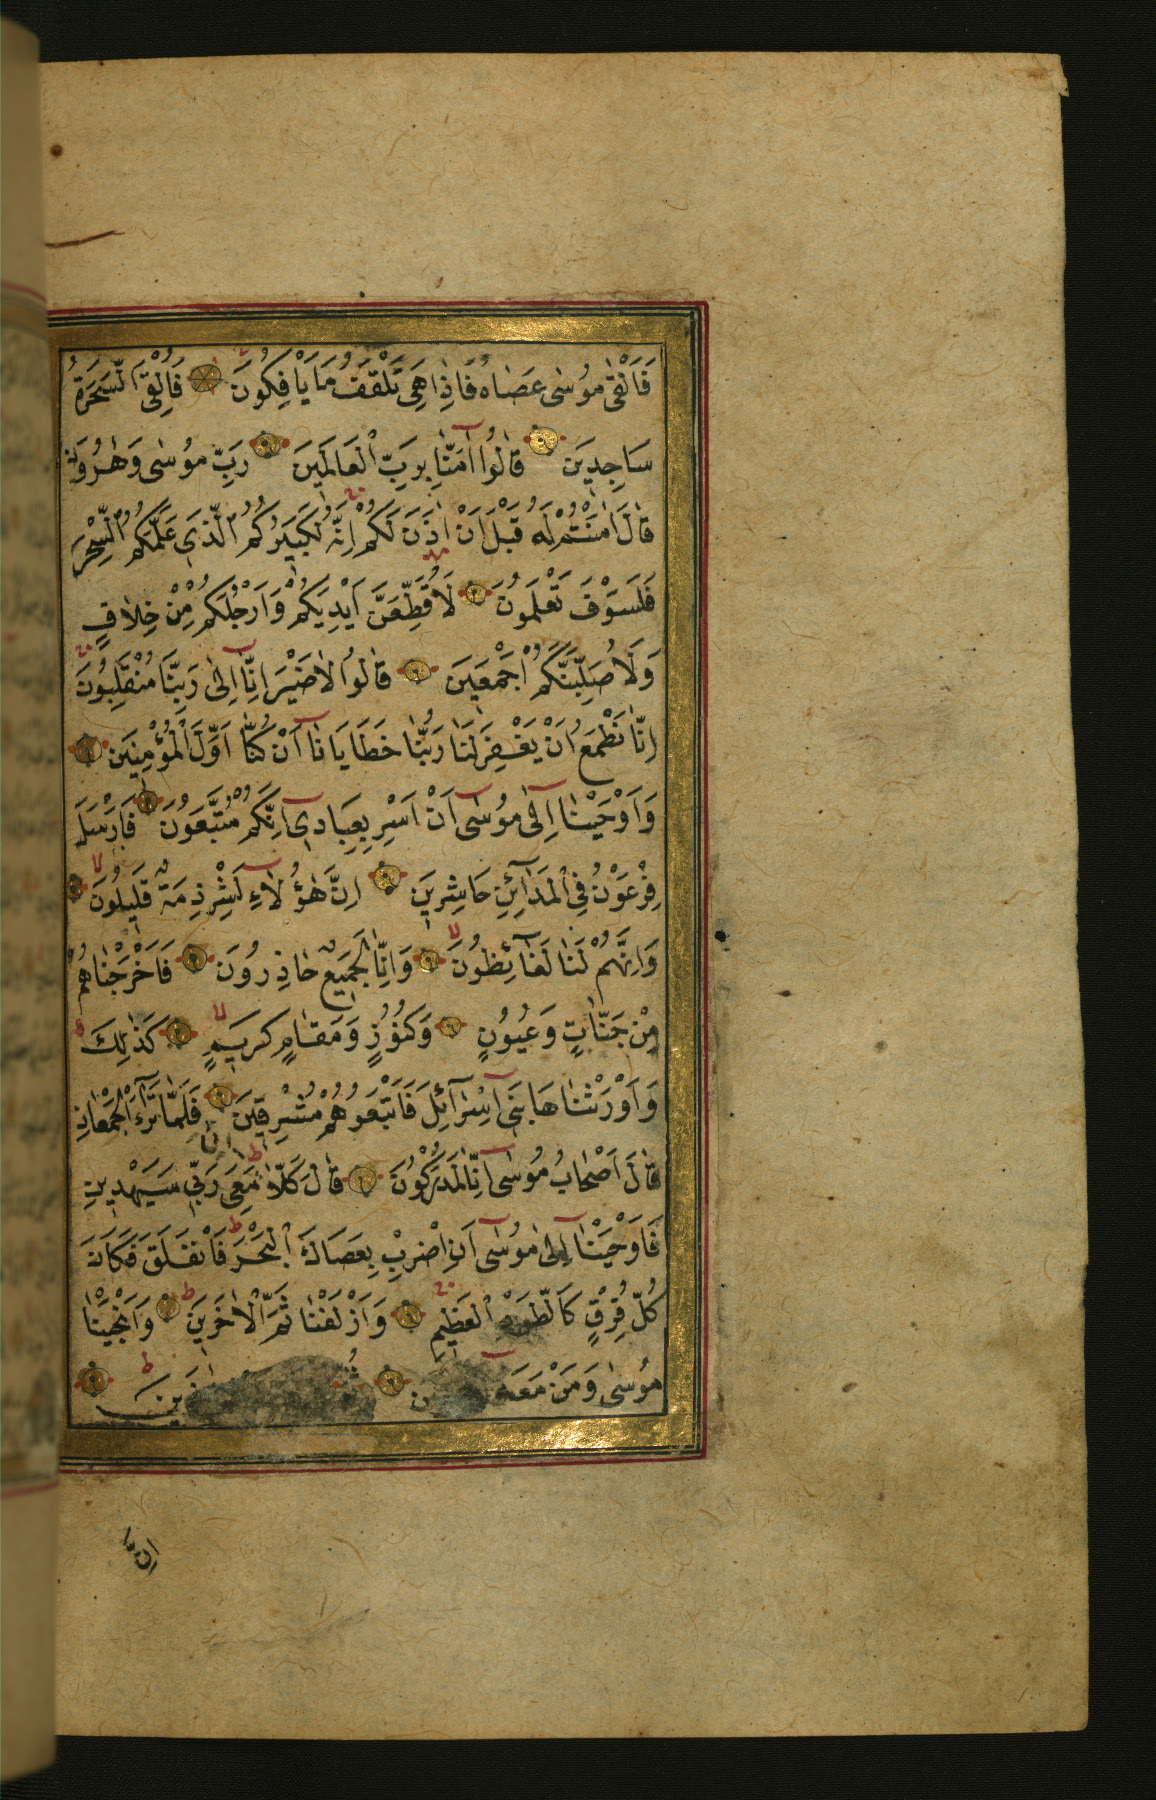 فَاَلْقٰى مُوسٰى عَصَاهُ فَاِذَا هِىَ تَلْقَفُ مَا يَاْفِكُونَ فَاُلْقِىَ السَّحَرَةُ
سَاجِدِينَ قَالُوا اٰمَنَّا بِرَبِّ الْعَالَمِينَ رَبِّ مُوسٰى وَهٰرُونَ
قَالَ اٰمَنْتُمْ لَهُ قَبْلَ اَنْ اٰذَنَ لَكُمْ اِنَّهُ لَكَبِيرُكُمُ الَّذِى عَلَّمَكُمُ السِّحْرَ
فَلَسَوْفَ تَعْلَمُونَ لَاُقَطِّعَنَّ اَيْدِيَكُمْ وَاَرْجُلَكُمْ مِنْ خِلَافٍ
وَلَاُصَلِّبَنَّكُمْ اَجْمَعِينَ قَالُوا لَا ضَيْرَ اِنَّا اِلٰى رَبِّنَا مُنْقَلِبُونَ
اِنَّا نَطْمَعُ اَنْ يَغْفِرَ لَنَا رَبُّنَا خَطَايَانَا اَنْ كُنَّا اَوَّلَ الْمُؤْمِنِينَ
وَاَوْحَيْنَا اِلٰى مُوسٰى اَنْ اَسْرِ بِعِبَادِى اِنَّكُمْ مُتَّبَعُونَ فَاَرْسَلَ
فِرْعَوْنُ فِى الْمَدَائِنِ حَاشِرِينَ اِنَّ هٰؤُلَاءِ لَشِرْذِمَةٌ قَلِيلُونَ
وَاِنَّهُمْ لَنَا لَغَائِظُونَ وَاِنَّا لَجَمِيعٌ حَاذِرُونَ فَاَخْرَجْنَاهُمْ
مِنْ جَنَّاتٍ وَعُيُونٍ وَكُنُوزٍ وَمَقَامٍ كَرِيمٍ كَذٰلِكَ
وَاَوْرَثْنَاهَا بَنِى اِسْرَائِلَ فَاَتْبَعُوهُمْ مُشْرِقِينَ فَلَمَّا تَرَاءَ الْجَمْعَانِ
قَالَ اَصْحَابُ مُوسٰى اِنَّا لَمُدْرَكُونَ قَالَ كَلَّا اِنَّ مَعِىَ رَبِّى سَيَهْدِينِ
فَاَوْحَيْنَا اِلٰى مُوسٰى اَنِ اضْرِبْ بِعَصَاكَ الْبَحْرَ فَانْفَلَقَ فَكَانَ
كُلُّ فِرْقٍ كَالطَّوْدِ الْعَظِيمِ وَاَزْلَفْنَا ثَمَّ الْاٰخَرِينَ وَاَنْجَيْنَا
مُوسٰى وَمَنْ مَعَهُ
اِنَّ